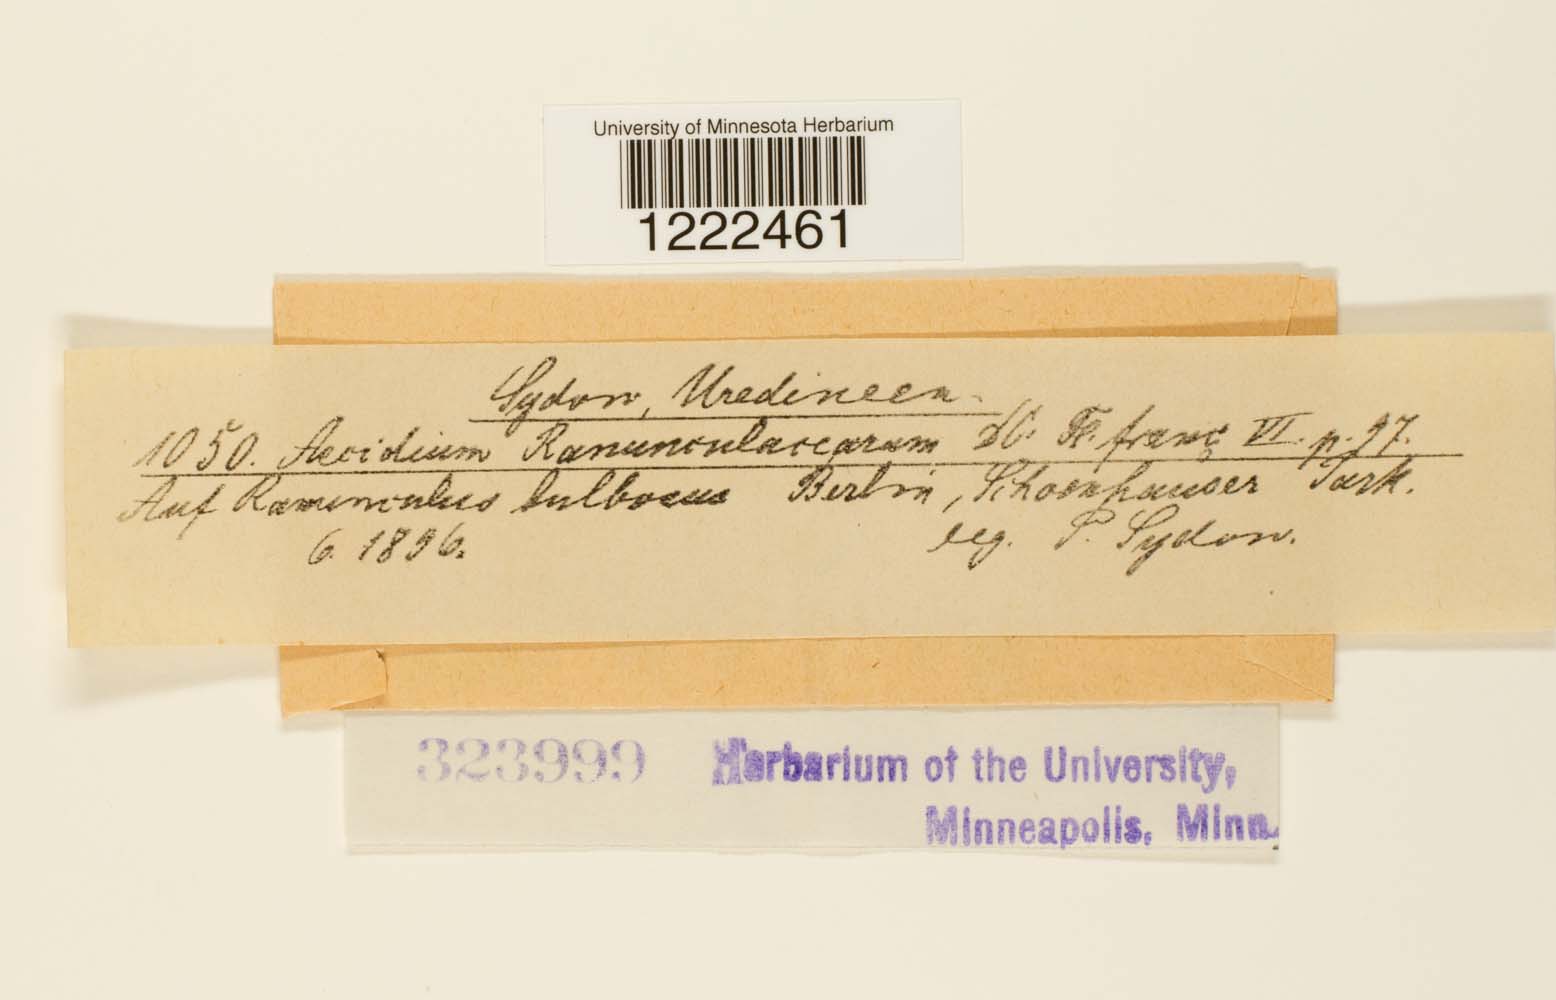 University of Minnesota Herbarium
1222461
Sydow, Uredineen.
1050. Aecidium Ranunculacearum DC. Fl. franç VI. p. 97.
Auf Ranunculus bulbosus Berlin, Schoenhauser Park.
6. 1896. leg. P. Sydow.
323999 Herbarium of the University,
Minneapolis, Minn.